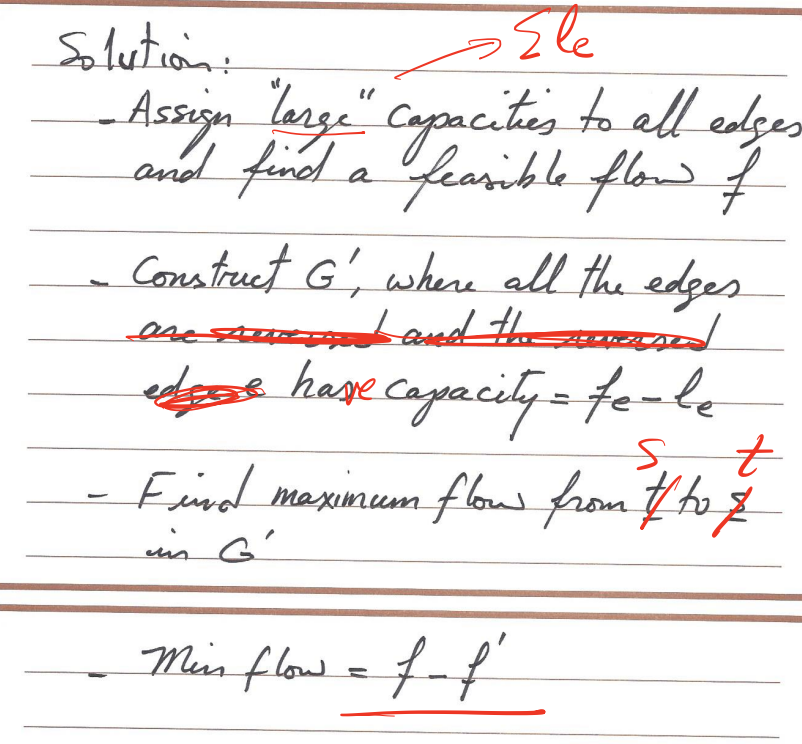 Σle
Solution:
- Assign "large" capacities to all edges
and find a feasible flow f
- Construct G', where all the edges
are reversed and the reversed
edge e have capacity = fe - le
s t
- Find maximum flow from t to s
in G'
- Min flow = f - f'